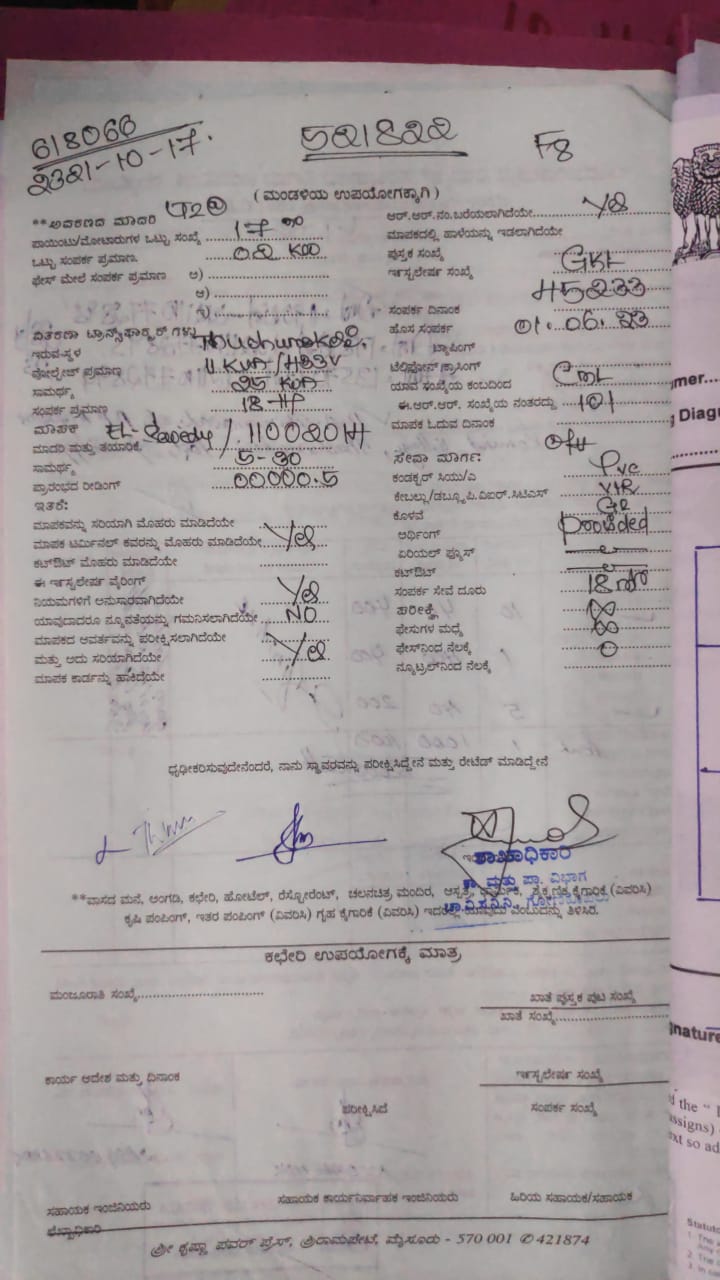 618066
2321-10-17.
521822
F8
( ಮಂಡಳಿಯ ಉಪಯೋಗಕ್ಕಾಗಿ )
**ಅವಕರಣದ ಮಾದರಿ
ಪಾಯಿಂಟು/ಮೋಟಾರುಗಳ ಒಟ್ಟು ಸಂಖ್ಯೆ 17
ಒಟ್ಟು ಸಂಪರ್ಕ ಪ್ರಮಾಣ. 02
ಫೇಸ್ ಮೇಲೆ ಸಂಪರ್ಕ ಪ್ರಮಾಣ ಅ)
ಆ)
ಇ)
ವಿತರಣಾ ಟ್ರಾನ್ಸ್‌ಫಾರ್ಮರ್ ಗಳು
ಇರುವ-ಸ್ಥಳ
ವೋಲ್ಟೇಜ್ ಪ್ರಮಾಣ
ಸಾಮರ್ಥ್ಯ 25 KVA
ಸಂಪರ್ಕ ಪ್ರಮಾಣ 18-HP
ಮಾಪಕ
ಮಾದರಿ ಮತ್ತು ತಯಾರಿಕೆ 110020H
ಸಾಮರ್ಥ್ಯ 5-30
ಪ್ರಾರಂಭದ ರೀಡಿಂಗ್ 00000.5
ಇತರೆ:
ಮಾಪಕವನ್ನು ಸರಿಯಾಗಿ ಮೊಹರು ಮಾಡಿದೆಯೇ
ಮಾಪಕ ಟರ್ಮಿನಲ್ ಕವರನ್ನು ಮೊಹರು ಮಾಡಿದೆಯೇ Yes
ಕಟ್‌ಔಟ್ ಮೊಹರು ಮಾಡಿದೆಯೇ
ಈ ಇನ್ಸ್‌ಟಲೇಷನ್ ವೈರಿಂಗ್
ನಿಯಮಗಳಿಗೆ ಅನುಸಾರವಾಗಿದೆಯೇ Yes
ಯಾವುದಾದರೂ ನ್ಯೂನತೆಯನ್ನು ಗಮನಿಸಲಾಗಿದೆಯೇ NO
ಮಾಪಕದ ಆವರ್ತವನ್ನು ಪರೀಕ್ಷಿಸಲಾಗಿದೆಯೇ
ಮತ್ತು ಅದು ಸರಿಯಾಗಿದೆಯೇ Yes
ಮಾಪಕ ಕಾರ್ಡನ್ನು ಹಾಕಿದೆಯೇ
ಆರ್.ಆರ್.ನಂ.ಬರೆಯಲಾಗಿದೆಯೇ Yes
ಮಾಪಕದಲ್ಲಿ ಹಾಳೆಯನ್ನು ಇಡಲಾಗಿದೆಯೇ
ಪುಸ್ತಕ ಸಂಖ್ಯೆ
ಇನ್ಸ್‌ಟಲೇಷನ್ ಸಂಖ್ಯೆ GKL
H5233
ಸಂಪರ್ಕ ದಿನಾಂಕ
ಹೊಸ ಸಂಪರ್ಕ 01.06.23
ಟ್ಯಾಪಿಂಗ್
ಟೆಲಿಫೋನ್ ಕ್ರಾಸಿಂಗ್
ಯಾವ ಸಂಖ್ಯೆಯ ಕಂಬದಿಂದ
ಈ.ಆರ್.ಆರ್. ಸಂಖ್ಯೆಯ ನಂತರದ್ದು 101
ಮಾಪಕ ಓದುವ ದಿನಾಂಕ
ಸೇವಾ ಮಾರ್ಗ:
ಕಂಡಕ್ಟರ್ ಸಿಯು/ಎ Pvc
ಕೇಬಲ್ಲು/ಡಬ್ಲ್ಯೂ.ಪಿ.ವಿಐಆರ್.ಸಿಟಿಎಸ್ VIR
ಕೊಳವೆ GI
ಅರ್ಥಿಂಗ್ provided
ಏರಿಯಲ್ ಫ್ಯೂಸ್
ಕಟ್‌ಔಟ್
ಸಂಪರ್ಕ ಸೇವೆ ದೂರು
ಪರೀಕ್ಷೆ ∞
ಫೇಸುಗಳ ಮಧ್ಯೆ ∞
ಫೇಸ್‌ನಿಂದ ನೆಲಕ್ಕೆ 0
ನ್ಯೂಟ್ರಲ್‌ನಿಂದ ನೆಲಕ್ಕೆ
ಧೃಢೀಕರಿಸುವುದೇನೆಂದರೆ, ನಾನು ಸ್ಥಾವರವನ್ನು ಪರೀಕ್ಷಿಸಿದ್ದೇನೆ ಮತ್ತು ರೇಟೆಡ್ ಮಾಡಿದ್ದೇನೆ
ಶಾಖಾಧಿಕಾರಿ
ಕಾ. ಮತ್ತು ಪಾ. ವಿಭಾಗ
**ವಾಸದ ಮನೆ, ಅಂಗಡಿ, ಕಛೇರಿ, ಹೋಟೆಲ್, ರೆಸ್ಟೋರೆಂಟ್, ಚಲನಚಿತ್ರ ಮಂದಿರ, ಆಸ್ಪತ್ರೆ, ಧಾರ್ಮಿಕ, ಶೈಕ್ಷಣಿಕ ಕೈಗಾರಿಕೆ (ವಿವರಿಸಿ)
ಕೃಷಿ ಪಂಪಿಂಗ್, ಇತರ ಪಂಪಿಂಗ್ (ವಿವರಿಸಿ) ಗೃಹ ಕೈಗಾರಿಕೆ (ವಿವರಿಸಿ)
ಕಛೇರಿ ಉಪಯೋಗಕ್ಕೆ ಮಾತ್ರ
ಮಂಜೂರಾತಿ ಸಂಖ್ಯೆ
ಖಾತೆ ಪುಸ್ತಕ ಪುಟ ಸಂಖ್ಯೆ
ಖಾತೆ ಸಂಖ್ಯೆ
ಕಾರ್ಯ ಆದೇಶ ಮತ್ತು ದಿನಾಂಕ
ಇನ್ಸ್‌ಟಲೇಷನ್ ಸಂಖ್ಯೆ
ಪರೀಕ್ಷಿಸಿದೆ
ಸಂಪರ್ಕ ಸಂಖ್ಯೆ
ಸಹಾಯಕ ಇಂಜಿನಿಯರು
ಸಹಾಯಕ ಕಾರ್ಯನಿರ್ವಾಹಕ ಇಂಜಿನಿಯರು
ಹಿರಿಯ ಸಹಾಯಕ/ಸಹಾಯಕ
ಲೆಖ್ಖಾಧಿಕಾರಿ
ಶ್ರೀ ಕೃಷ್ಣಾ ಪವರ್ ಪ್ರೆಸ್, ಶ್ರೀರಾಮಪೇಟೆ, ಮೈಸೂರು - 570 001 ✆ 421874